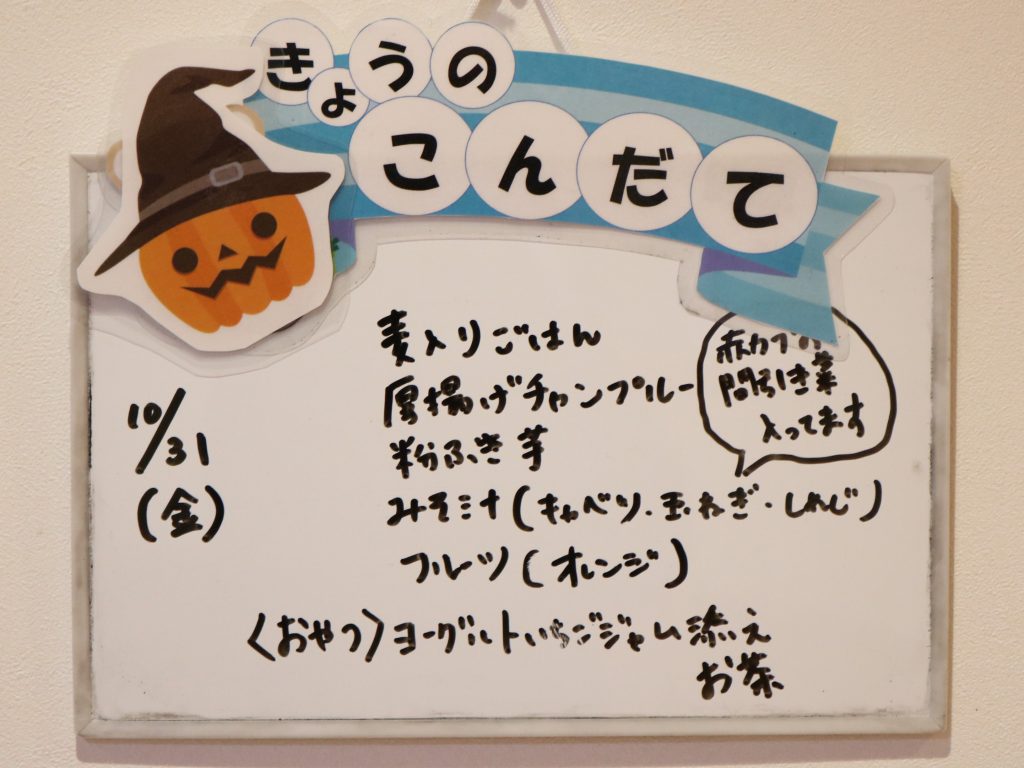 きょうの
こんだて
10/31
(金)
麦入りごはん
厚揚げチャンプルー
粉ふき芋
みそ汁(キャベツ・玉ねぎ・しめじ)
赤カブの
間引き菜
入ってます
フルーツ(オレンジ)
〈おやつ〉ヨーグルトいちごジャム添え
お茶